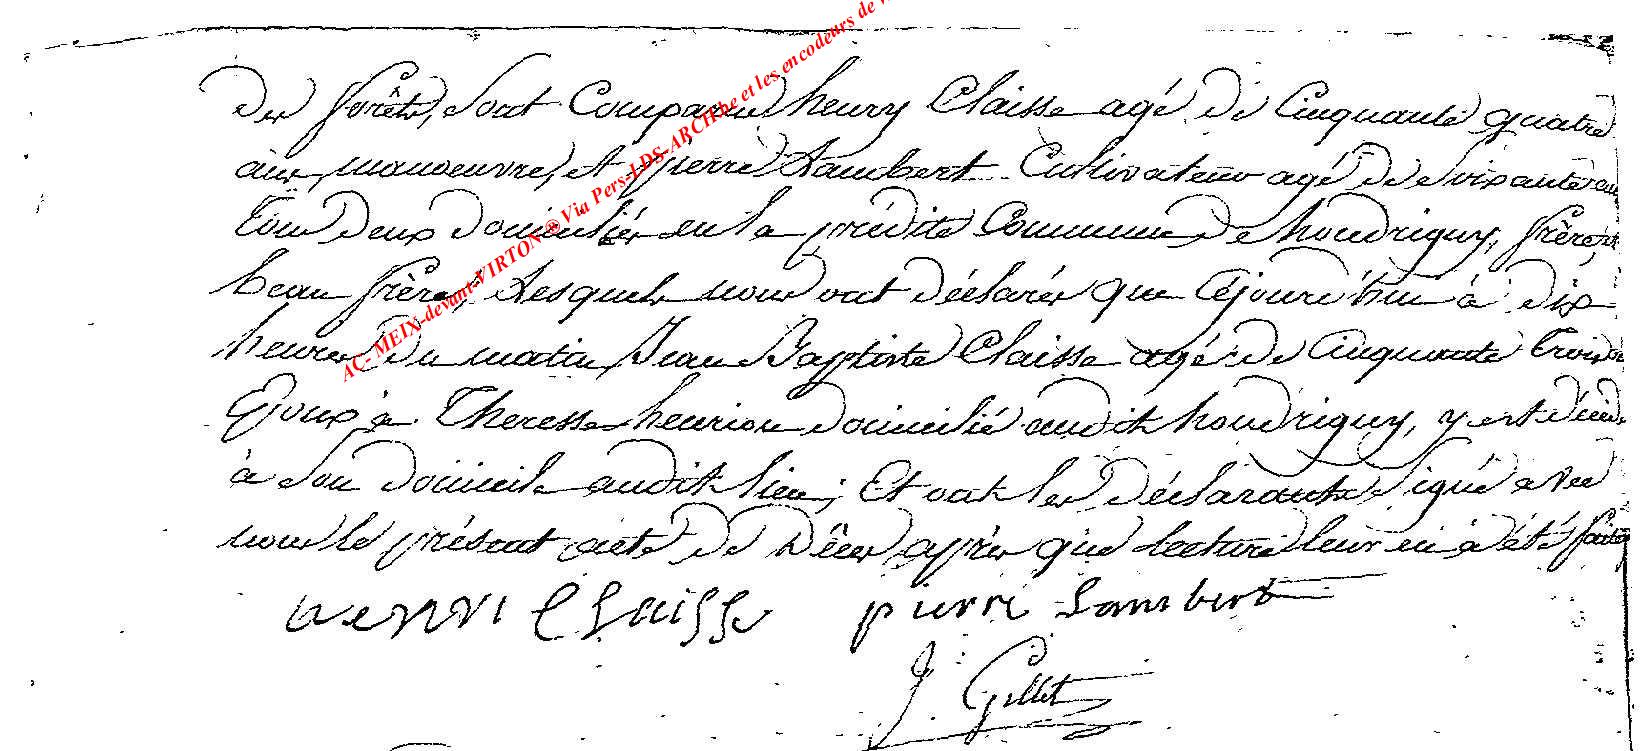 des forêts, sont Comparu henry Claisse agé de Cinquante quatre
ans, manoeuvre, et pierre Lambert Cultivateur agé de soixante ans
Tous deux domiciliés en la prédite Commune de houdrigny, frère et
beau frère, Lesquels nous ont déclarés que Cejourd'hui à dix
heures du matin, Jean Baptiste Claisse agé de Cinquante trois
Epoux à Theresse henrion domicilié audit houdrigny, y est décédé
à son domicile audit lieu; Et ont les déclarants signé avec
nous le présent acte de Décès, après que lecture leur en à été faite
henri Claisse pierre Lambert
J Gillet
AC- MEIX-devant-VIRTON ® Via Pers-LDS-ARCHhe et les encodeurs de